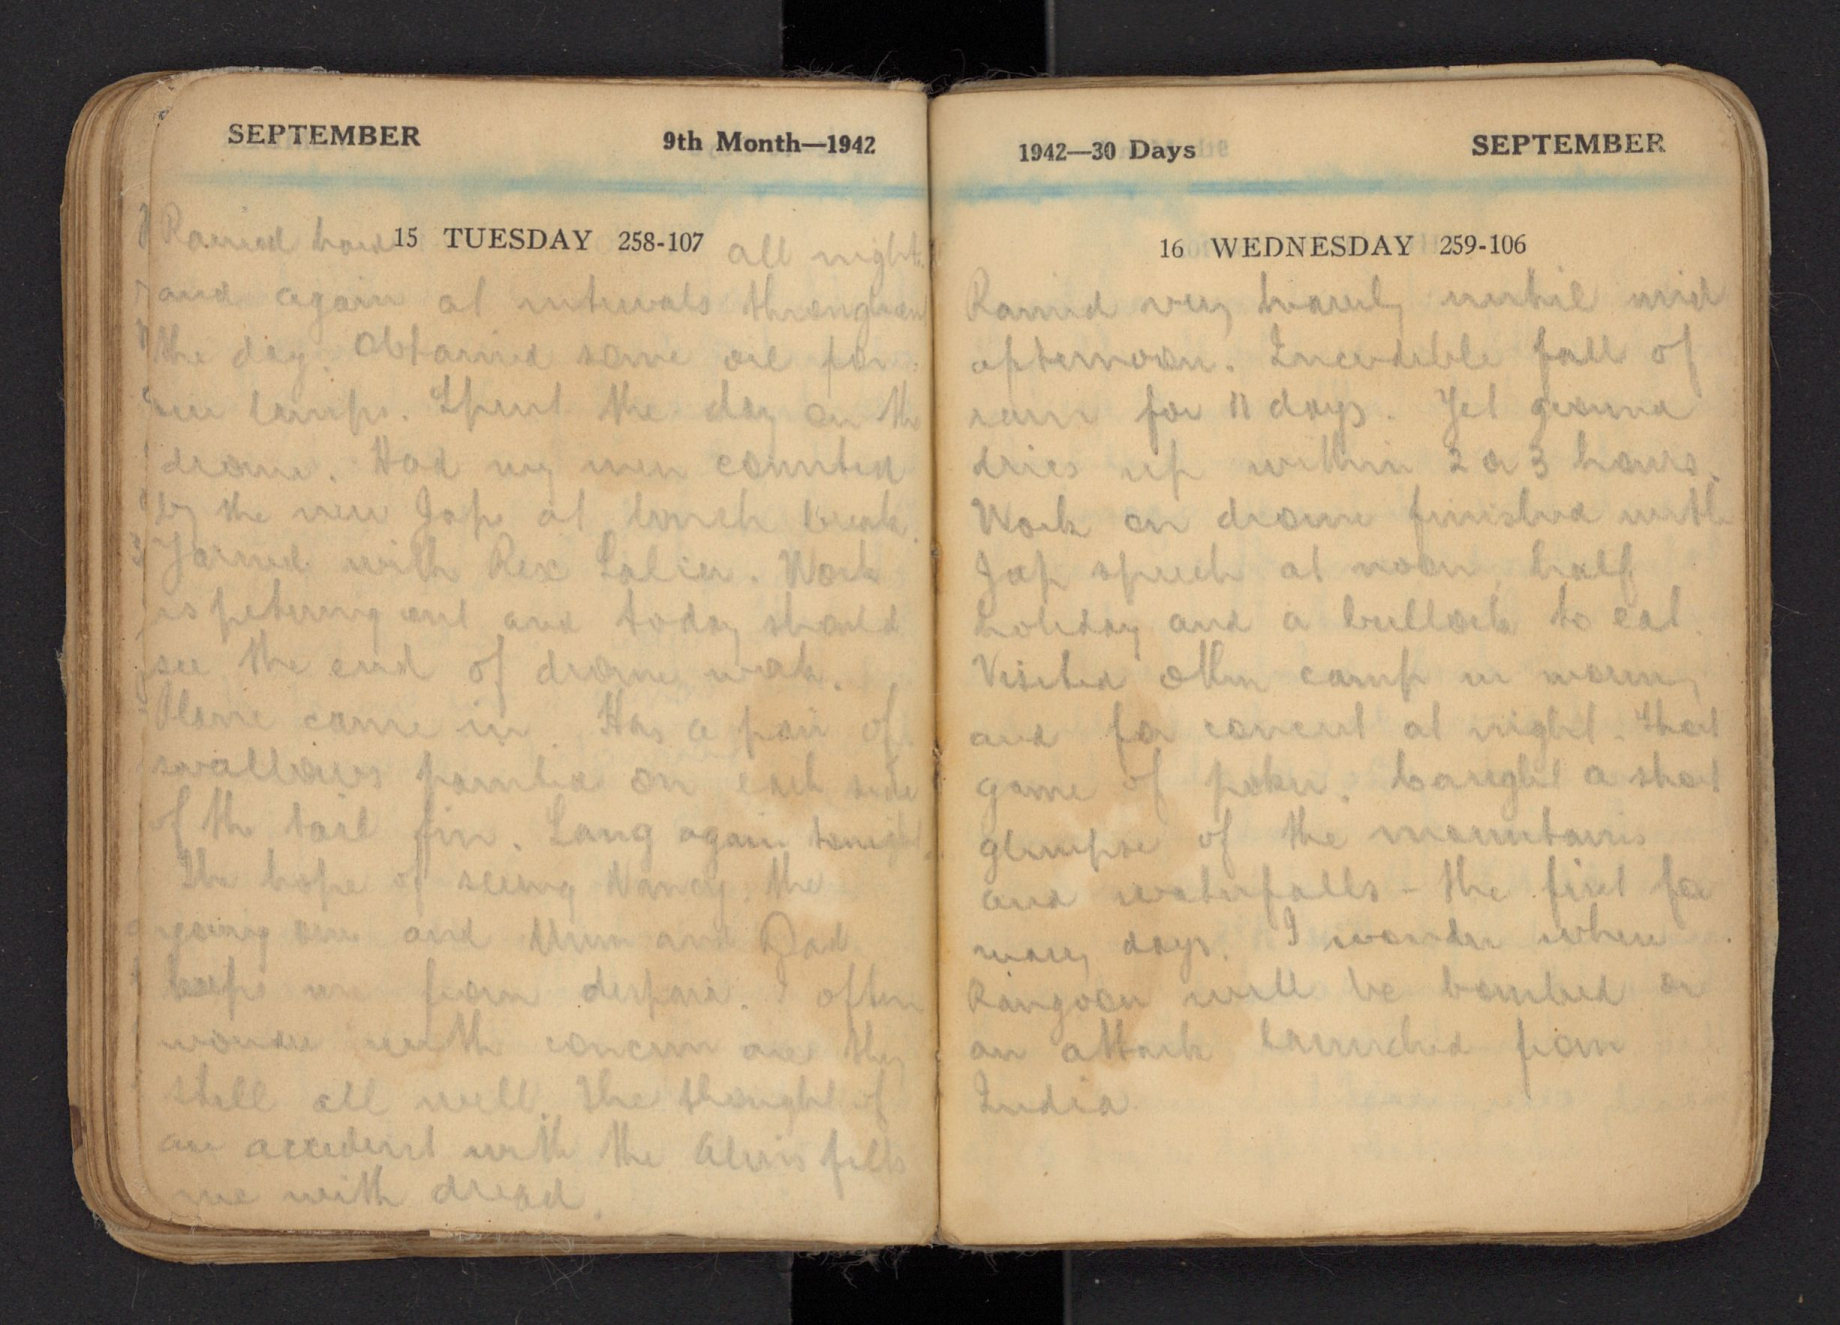 SEPTEMBER 9th Month—1942
15 TUESDAY 258-107
Rained hard all night
and again at intervals throughout
the day. Obtained some oil for
our lamps. Spent the day on the
drome. Had my men counted
by the new Jap at lunch break.
Yarned with Rex Lalier. Work
is petering out and today should
see the end of drome work.
Plane came in. Has a pair of
swallows painted on each side
of the tail fin. Lang again tonight.
The hope of seeing Nancy, the
young one and Mum and Dad
keeps me from despair. I often
wonder with concern are they
still all well. The thought of
an accident with the Alvis fills
me with dread.
1942—30 Days SEPTEMBER
16 WEDNESDAY 259-106
Rained very heavily until mid
afternoon. Incredible fall of
rain for 11 days. Yet ground
dries up within 2 or 3 hours.
Work on drome finished with
Jap speech at noon, half
holiday and a bullock to eat.
Visited other camp in morning
and for concert at night. Had
game of poker. Caught a short
glimpse of the mountains
and waterfalls - the first for
many days. I wonder when
Rangoon will be bombed or
an attack launched from
India.